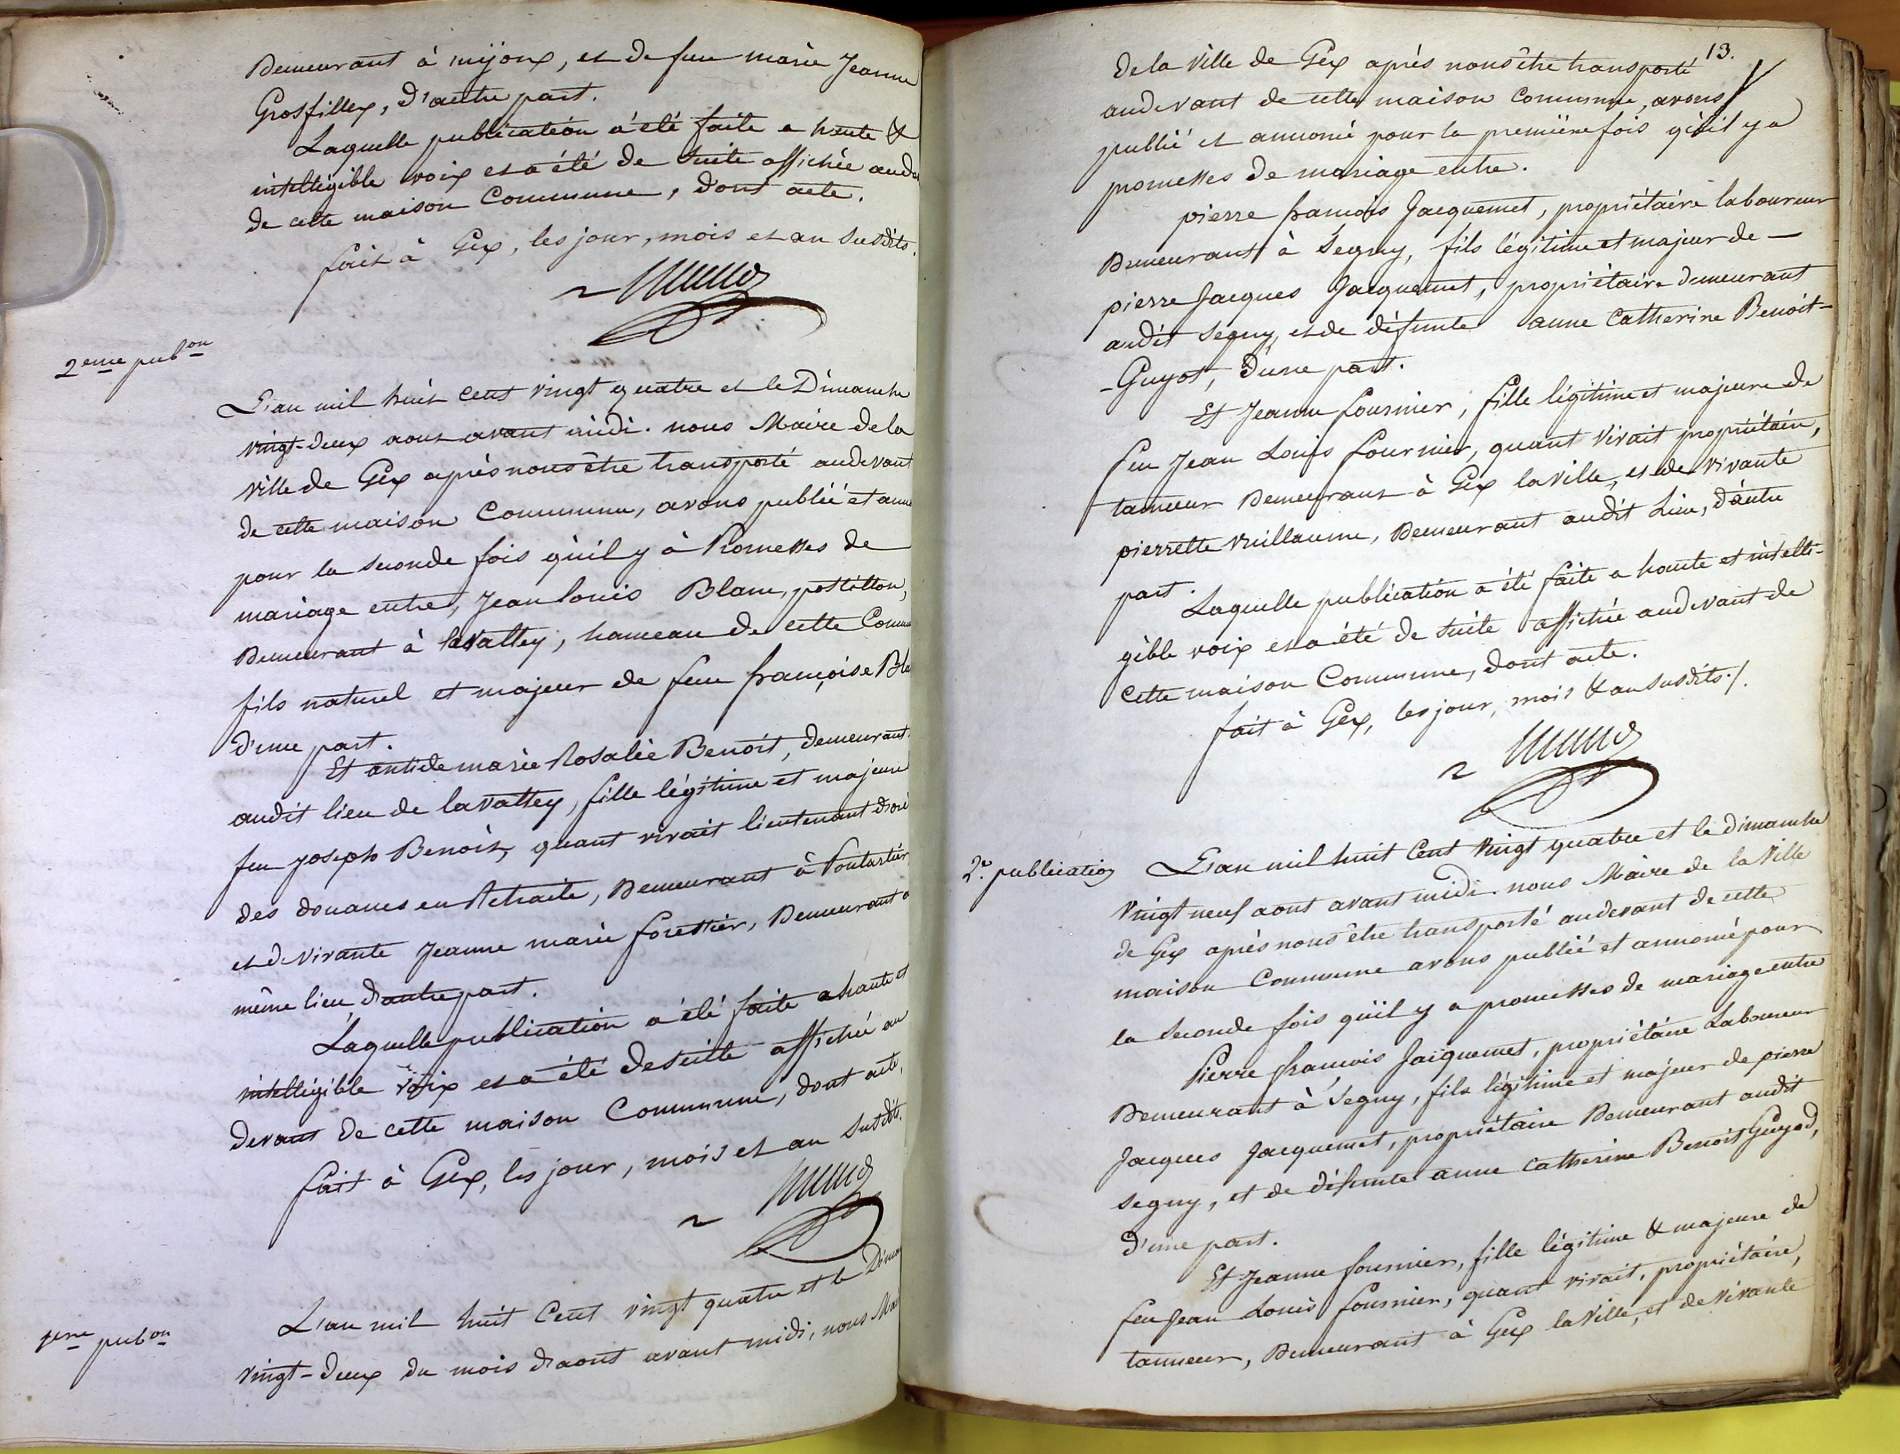 Demeurant à mijoux, et de feue marie Jeanne
Grosfilley, d'autre part.
Laquelle publication a été faite a haute &
intelligible voix et a été de suite affichée audev
de cette maison Commune, dont acte.
fait à Gex, les jour, mois et an susdits.
2eme pubon
L'an mil huit cent vingt quatre et le Dimanche
vingt-deux aout avant midi. nous Maire de la
ville de Gex après nous être transporté audevant
de cette maison Commune, avons publié et anno
pour la seconde fois qu'il y à Promesses de
mariage entre, Jean Louis Blanc, postillon,
Demeurant à lavattey, hameau de cette Commu
fils naturel et majeur de feue françoise Bla
d'une part.
Et antide marie Rosalie Benoit, demeurant
audit lieu de lavattey, fille légitime et majeure
feu Joseph Benoit, quant vivait lieutenant d'ord
des douanes en Retraite, Demeurant à Pontarlier
et de vivante Jeanne marie forestier, Demeurant a
même lieu, d'autre part.
Laquelle publication a été faite a haute et
intelligible voix et a été de suite affichée au
devant de cette maison Commune, dont acte,
fait à Gex, les jour, mois et an susdits.
1ere pubon
L'an mil huit Cent vingt quatre et le Diman
vingt-deux du mois d'aout avant midi, nous Mai
13.
de la Ville de Gex après nous être transporté
audevant de cette maison Commune, avons
publié et annoncé pour la première fois qu'il y a
promesses de mariage entre.
pierre francois Jacquemet, propriétaire laboureur
Demeurant à Segny, fils légitime et majeur de -
pierre Jacques Jacquemet, propriétaire demeurant
audit Segny, et de défunte anne Catherine Benoit-
-Guyot, d'une part.
Et Jeanne fournier, fille légitime et majeure de
feu Jean Louis fournier, quant vivait propriétaire,
tanneur Demeurant à Gex la ville, et de vivante
pierrette Vuillaume, Demeurant audit Lieu, d'autre
part.
Laquelle publication a été faite a haute et intelli-
gible voix et a été de suite affichée audevant de
cette maison Commune, dont acte.
fait à Gex, les jour, mois & an susdits./.
2e publication
L'an mil huit Cent vingt quatre et le dimanche
vingt neuf aout avant midi. nous Maire de la Ville
de Gex après nous être transporté audevant de cette
maison Commune avons publié et annoncé pour
la seconde fois qu'il y a promesses de mariage entre
Pierre françois Jaiquemet, propriétaire Laboureur
Demeurant à Segny, fils légitime et majeur de pierre
Jacques Jacquemet, propriétaire Demeurant audit
Segny, et de défunte anne Catherine Benoit Guyod,
d'une part.
Et Jeanne fournier, fille légitime & majeure de
feu Jean Louis fournier, quant vivait, propriétaire,
tanneur, Demeurant à Gex la Ville, et de vivante